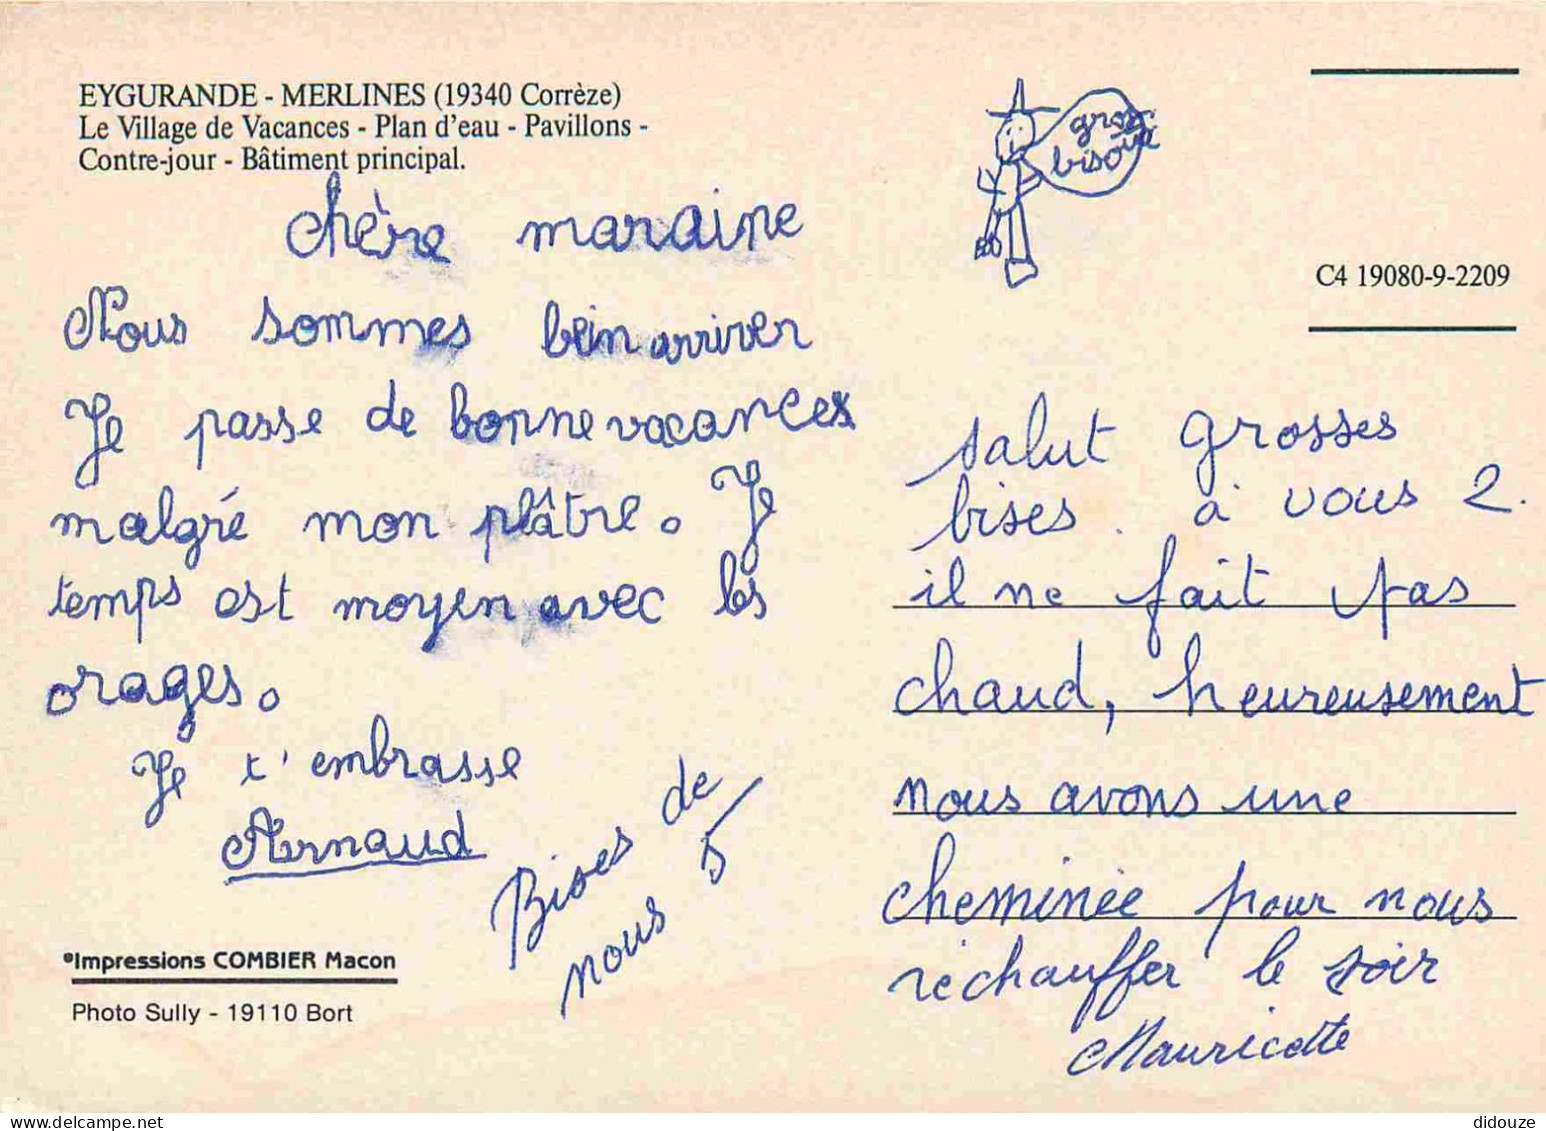 EYGURANDE - MERLINES (19340 Corrèze)
Le Village de Vacances - Plan d'eau - Pavillons -
Contre-jour - Bâtiment principal.
chère maraine
Nous sommes bein arriver
Je passe de bonne vacances
malgré mon plâtre. Je
temps est moyen avec les
orages.
Je t'embrasse
Arnaud
Bises de
nous 5
°Impressions COMBIER Macon
Photo Sully - 19110 Bort
gros
bisoux
C4 19080-9-2209
salut grosses
bises à vous 2.
il ne fait pas
chaud, heureusement
nous avons une
cheminée pour nous
réchauffer le soir
Mauricette
didouze